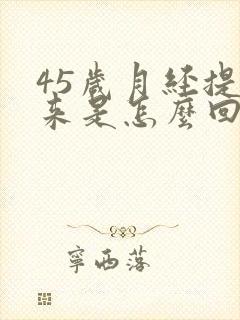 45歲月經提
來是怎麼回
寧西落